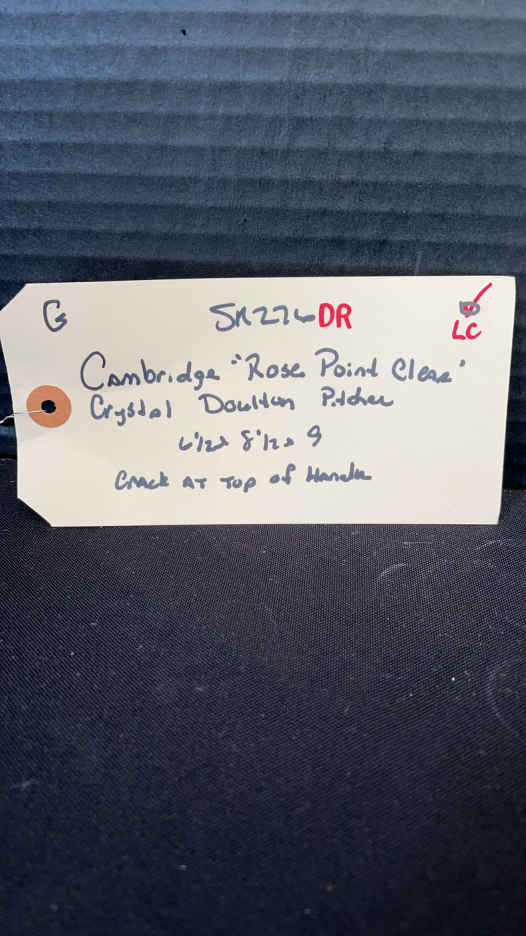 G SR276DR
LC
Cambridge "Rose Point Clear"
Crystal Doulton Pitcher
6 1/2 x 8 1/2 x 9
Crack AT Top of Handle